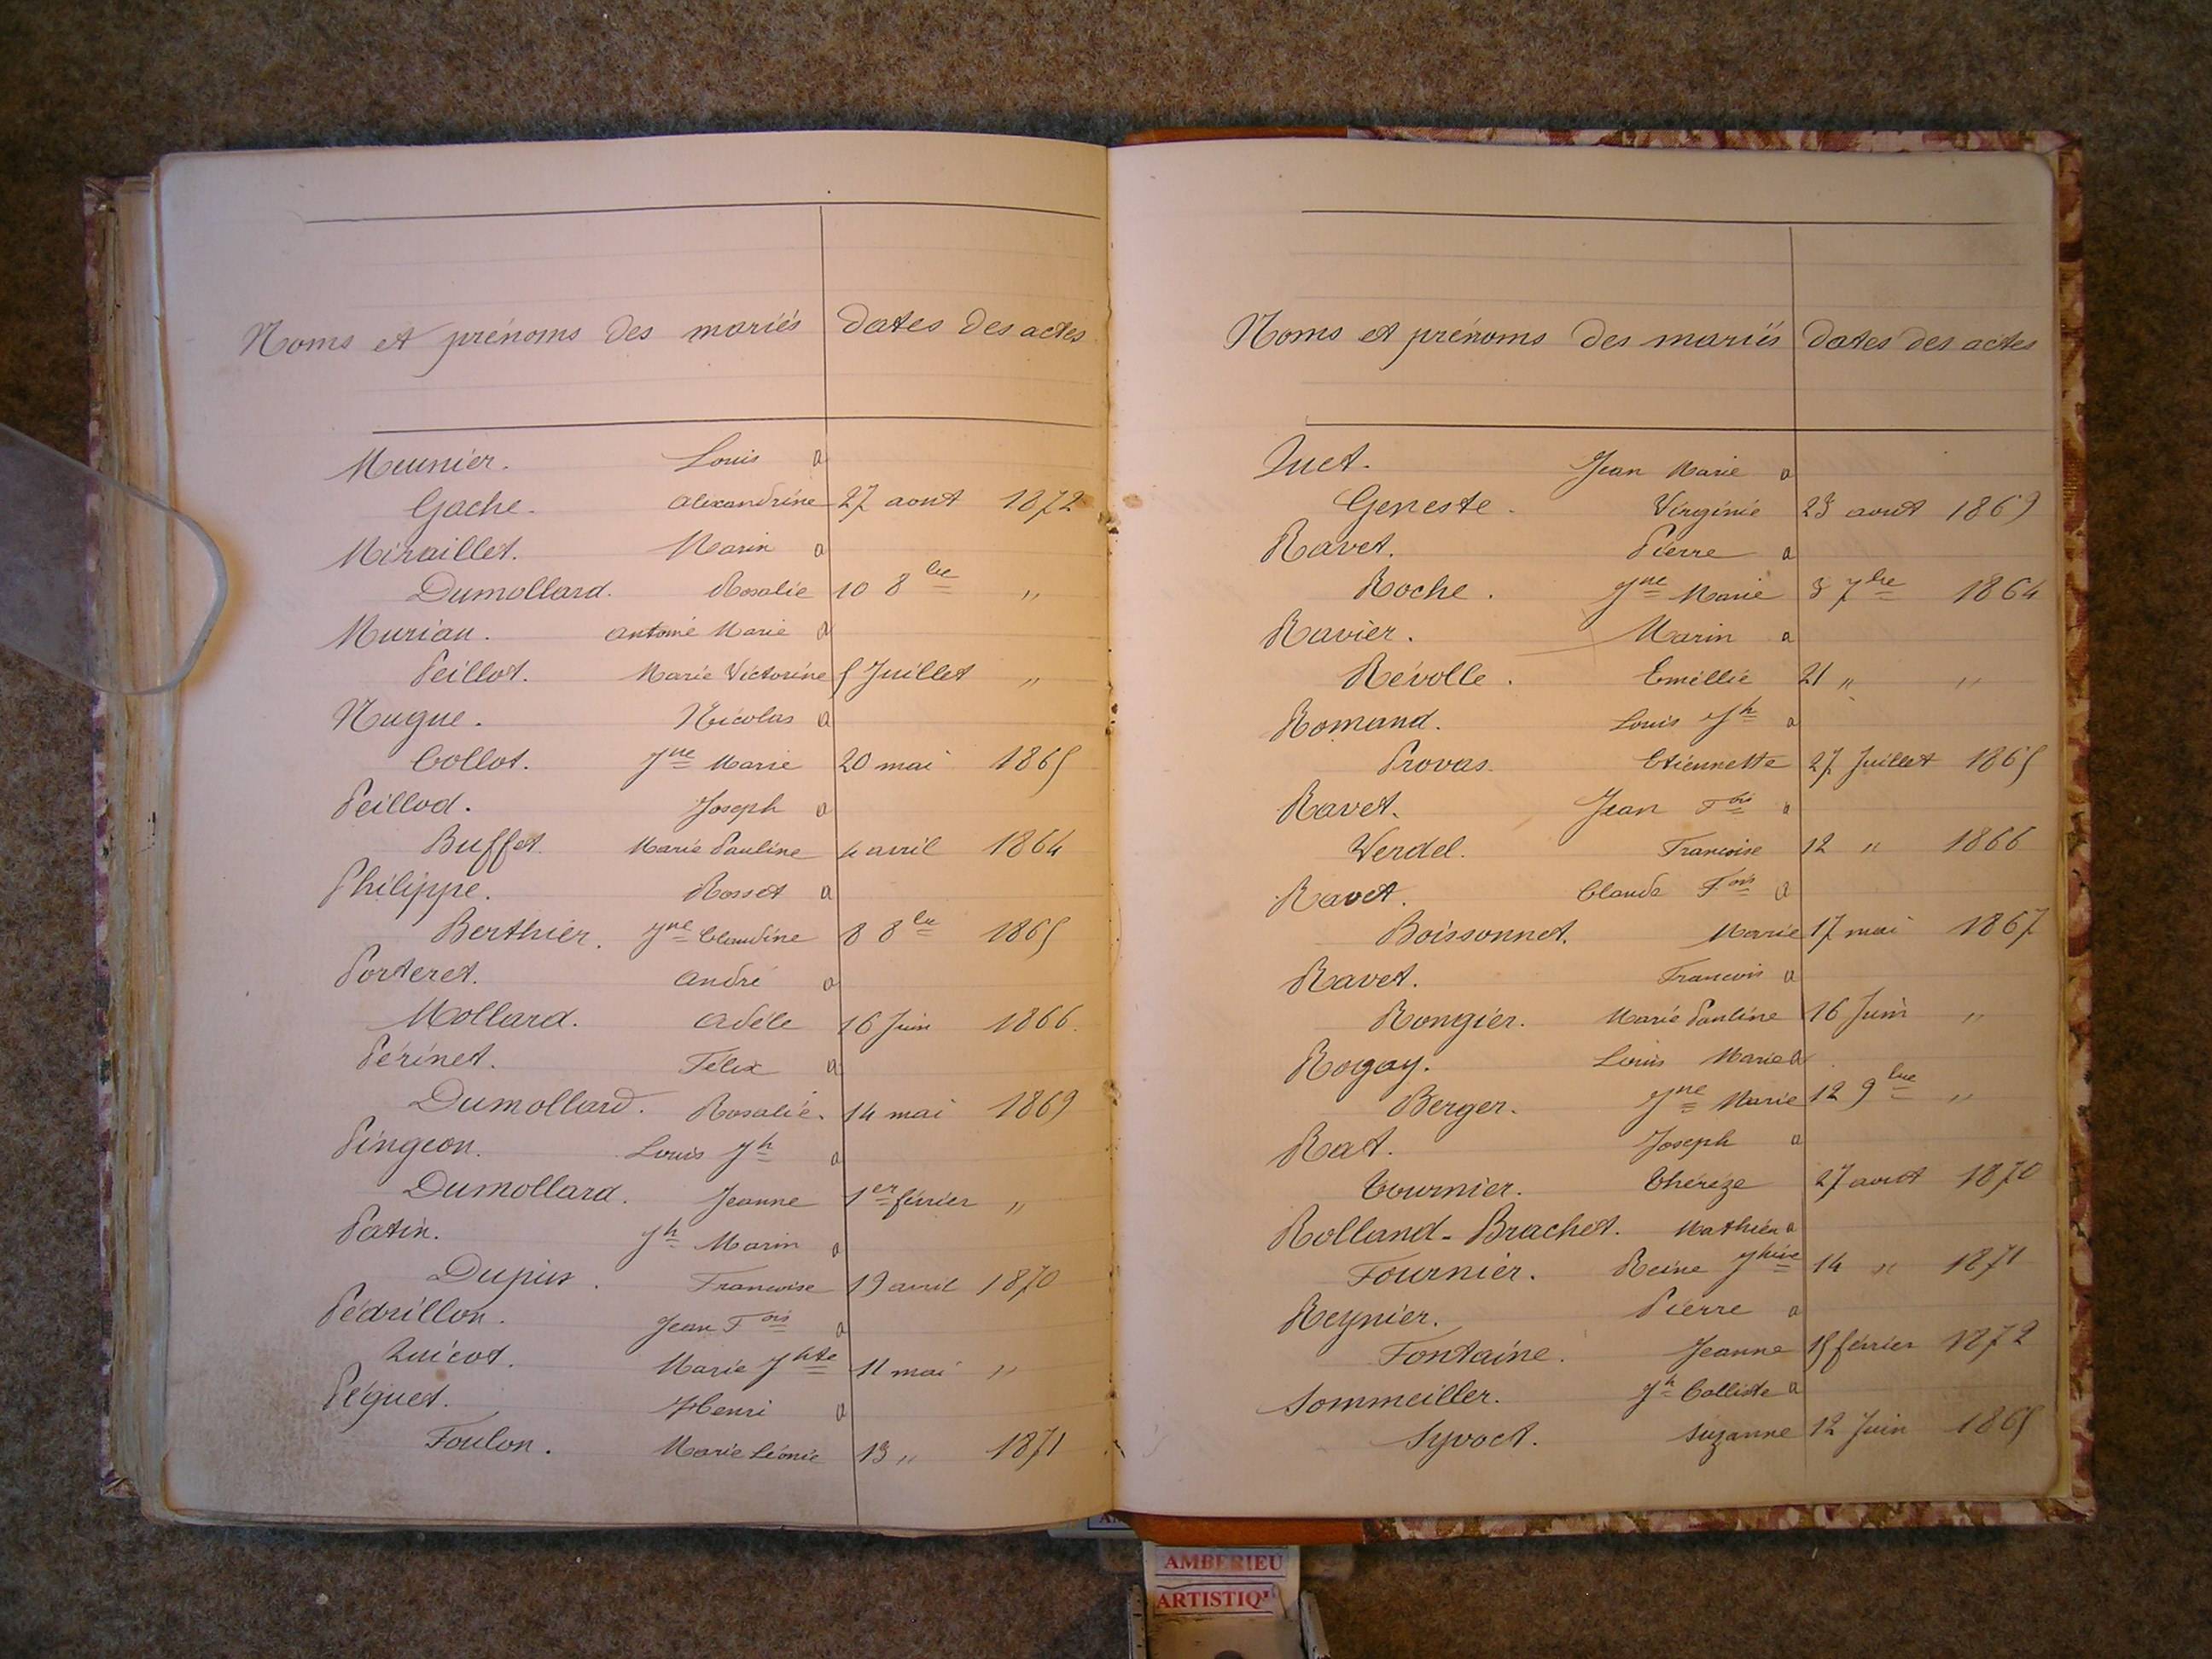 Noms et prénoms des mariés dates des actes
Meunier. Louis a
Gache. Alexandrine 27 aout 1872
Miraillet. Marin a
Dumollard. Rosalie 10 8bre "
Murian. Antoine Marie a
Peillot. Marie Victorine 5 Juillet "
Nugue. Nicolas a
Collot. Jne Marie 20 mai 1865
Peillod. Joseph a
Buffet. Marie Pauline 4 avril 1864
Philippe. Rosset a
Berthier. Jne Claudine 8 8bre 1865
Porteret. André a
Mollard. Adèle 16 Juin 1866.
Périnet. Félix a
Dumollard. Rosalie. 14 mai 1869
Pingeon. Louis Jh a
Dumollard. Jeanne 1er février "
Patin. Jh Marin a
Dupuis. Francoise 19 avril 1870
Pédrillon. Jean Fois a
Quicot. Marie Jhte 11 mai "
Péguet. Henri a
Foulon. Marie Léonie 13 " 1871
Noms et prénoms des mariés dates des actes
Quet. Jean Marie a
Geneste. Virginie 23 aout 1869
Ravet. Pierre a
Roche. Jne Marie 3 7bre 1864
Ravier. Marin a
Révolle. Eméllie 21 " "
Romand. Louis Jh a
Provas. Etiennette 27 Juillet 1865
Ravet. Jean Fois a
Verdel. Francoise 12 " 1866
Ravet. Claude Fois a
Boissonnet. Marie 17 mai 1867
Ravet. Francois a
Rongier. Marie Pauline 16 Juin "
Rogay. Louis Marie a
Berger. Jne Marie 12 9bre "
Rat. Joseph a
Tournier. Thérèze 27 aout 1870
Rolland-Brachet. Mathieu a
Fournier. Reine Jhine 14 " 1871
Reynier. Pierre a
Fontaine. Jeanne 15 février 1872
Sommeiller. Jh Calliste a
Syvoct. Suzanne 12 Juin 1865
AMBERIEU
ARTISTIQU